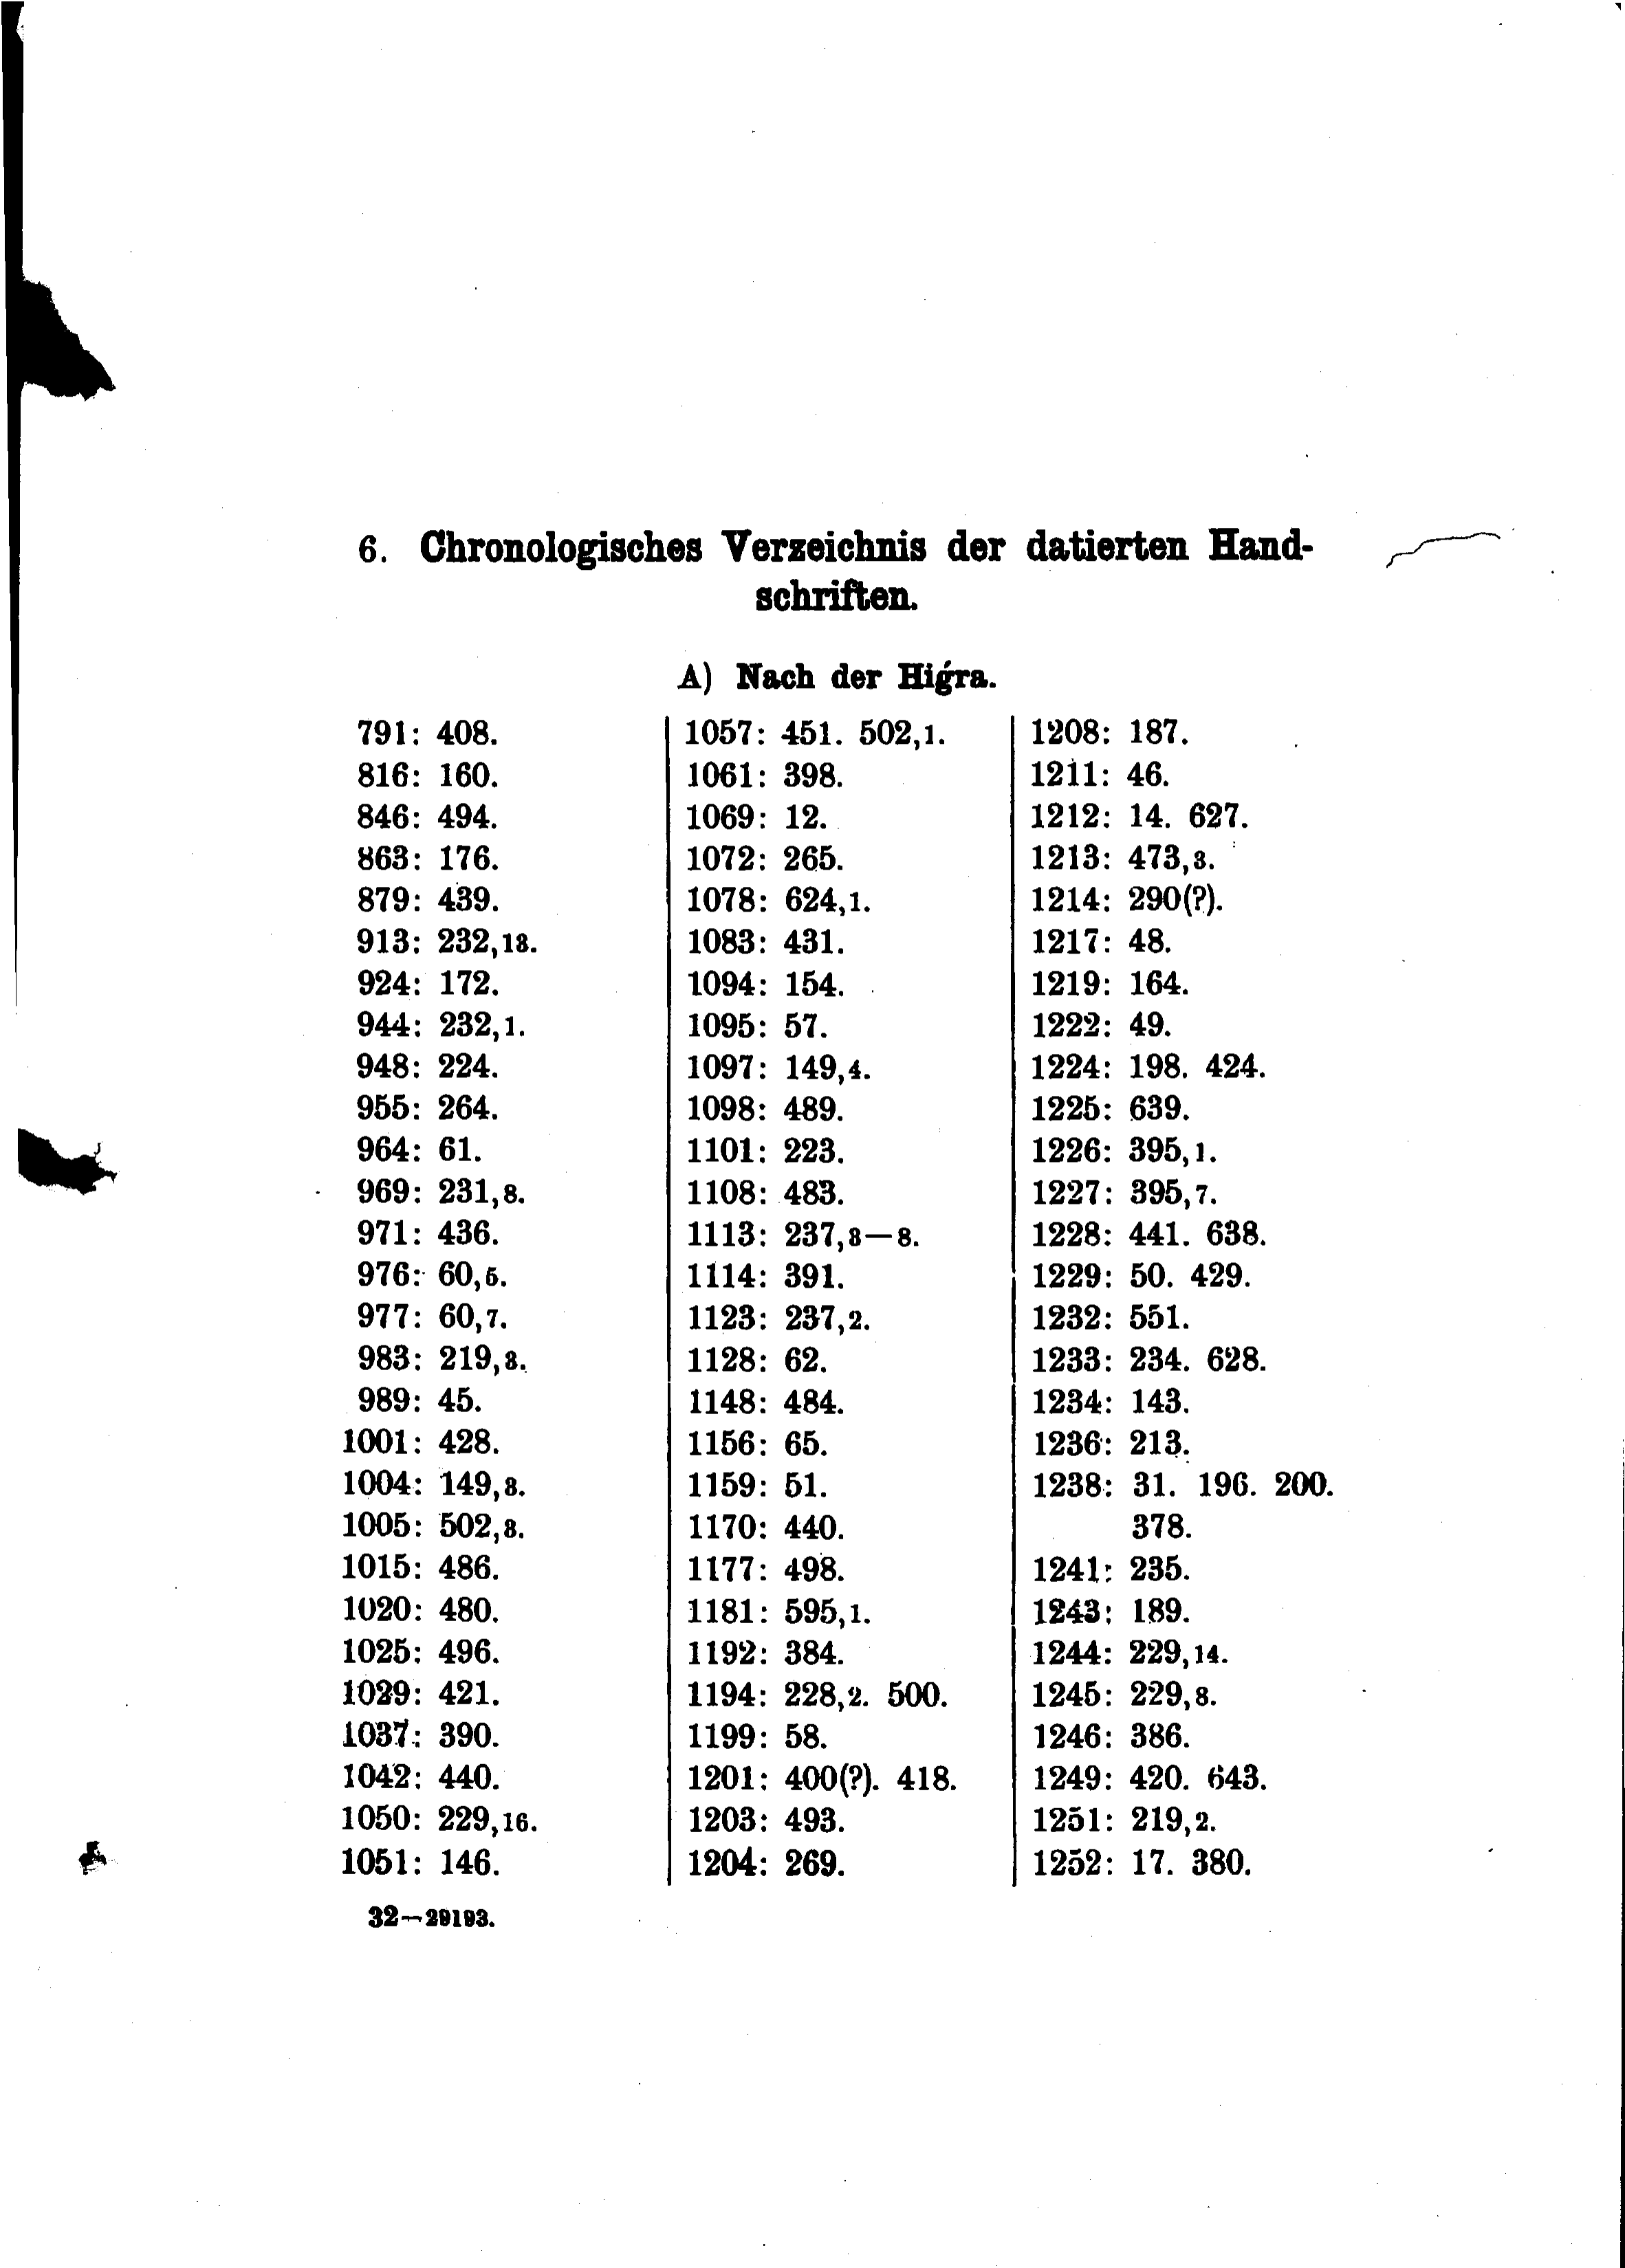 6. Chronologisches Verzeichnis der datierten Hand-
schriften.
A) Nach der Hiǵra.
791: 408.
816: 160.
846: 494.
863: 176.
879: 439.
913: 232,13.
924: 172.
944: 232,1.
948: 224.
955: 264.
964: 61.
969: 231,8.
971: 436.
976: 60,5.
977: 60,7.
983: 219,3.
989: 45.
1001: 428.
1004: 149,3.
1005: 502,3.
1015: 486.
1020: 480.
1025: 496.
1029: 421.
1037: 390.
1042: 440.
1050: 229,16.
1051: 146.
1057: 451. 502,1.
1061: 398.
1069: 12.
1072: 265.
1078: 624,1.
1083: 431.
1094: 154.
1095: 57.
1097: 149,4.
1098: 489.
1101: 223.
1108: 483.
1113: 237,3—8.
1114: 391.
1123: 237,2.
1128: 62.
1148: 484.
1156: 65.
1159: 51.
1170: 440.
1177: 498.
1181: 595,1.
1192: 384.
1194: 228,2. 500.
1199: 58.
1201: 400(?). 418.
1203: 493.
1204: 269.
1208: 187.
1211: 46.
1212: 14. 627.
1213: 473,3.
1214: 290(?).
1217: 48.
1219: 164.
1222: 49.
1224: 198. 424.
1225: 639.
1226: 395,1.
1227: 395,7.
1228: 441. 638.
1229: 50. 429.
1232: 551.
1233: 234. 628.
1234: 143.
1236: 213.
1238: 31. 196. 200.
378.
1241: 235.
1243: 189.
1244: 229,14.
1245: 229,8.
1246: 386.
1249: 420. 643.
1251: 219,2.
1252: 17. 380.
32—29193.